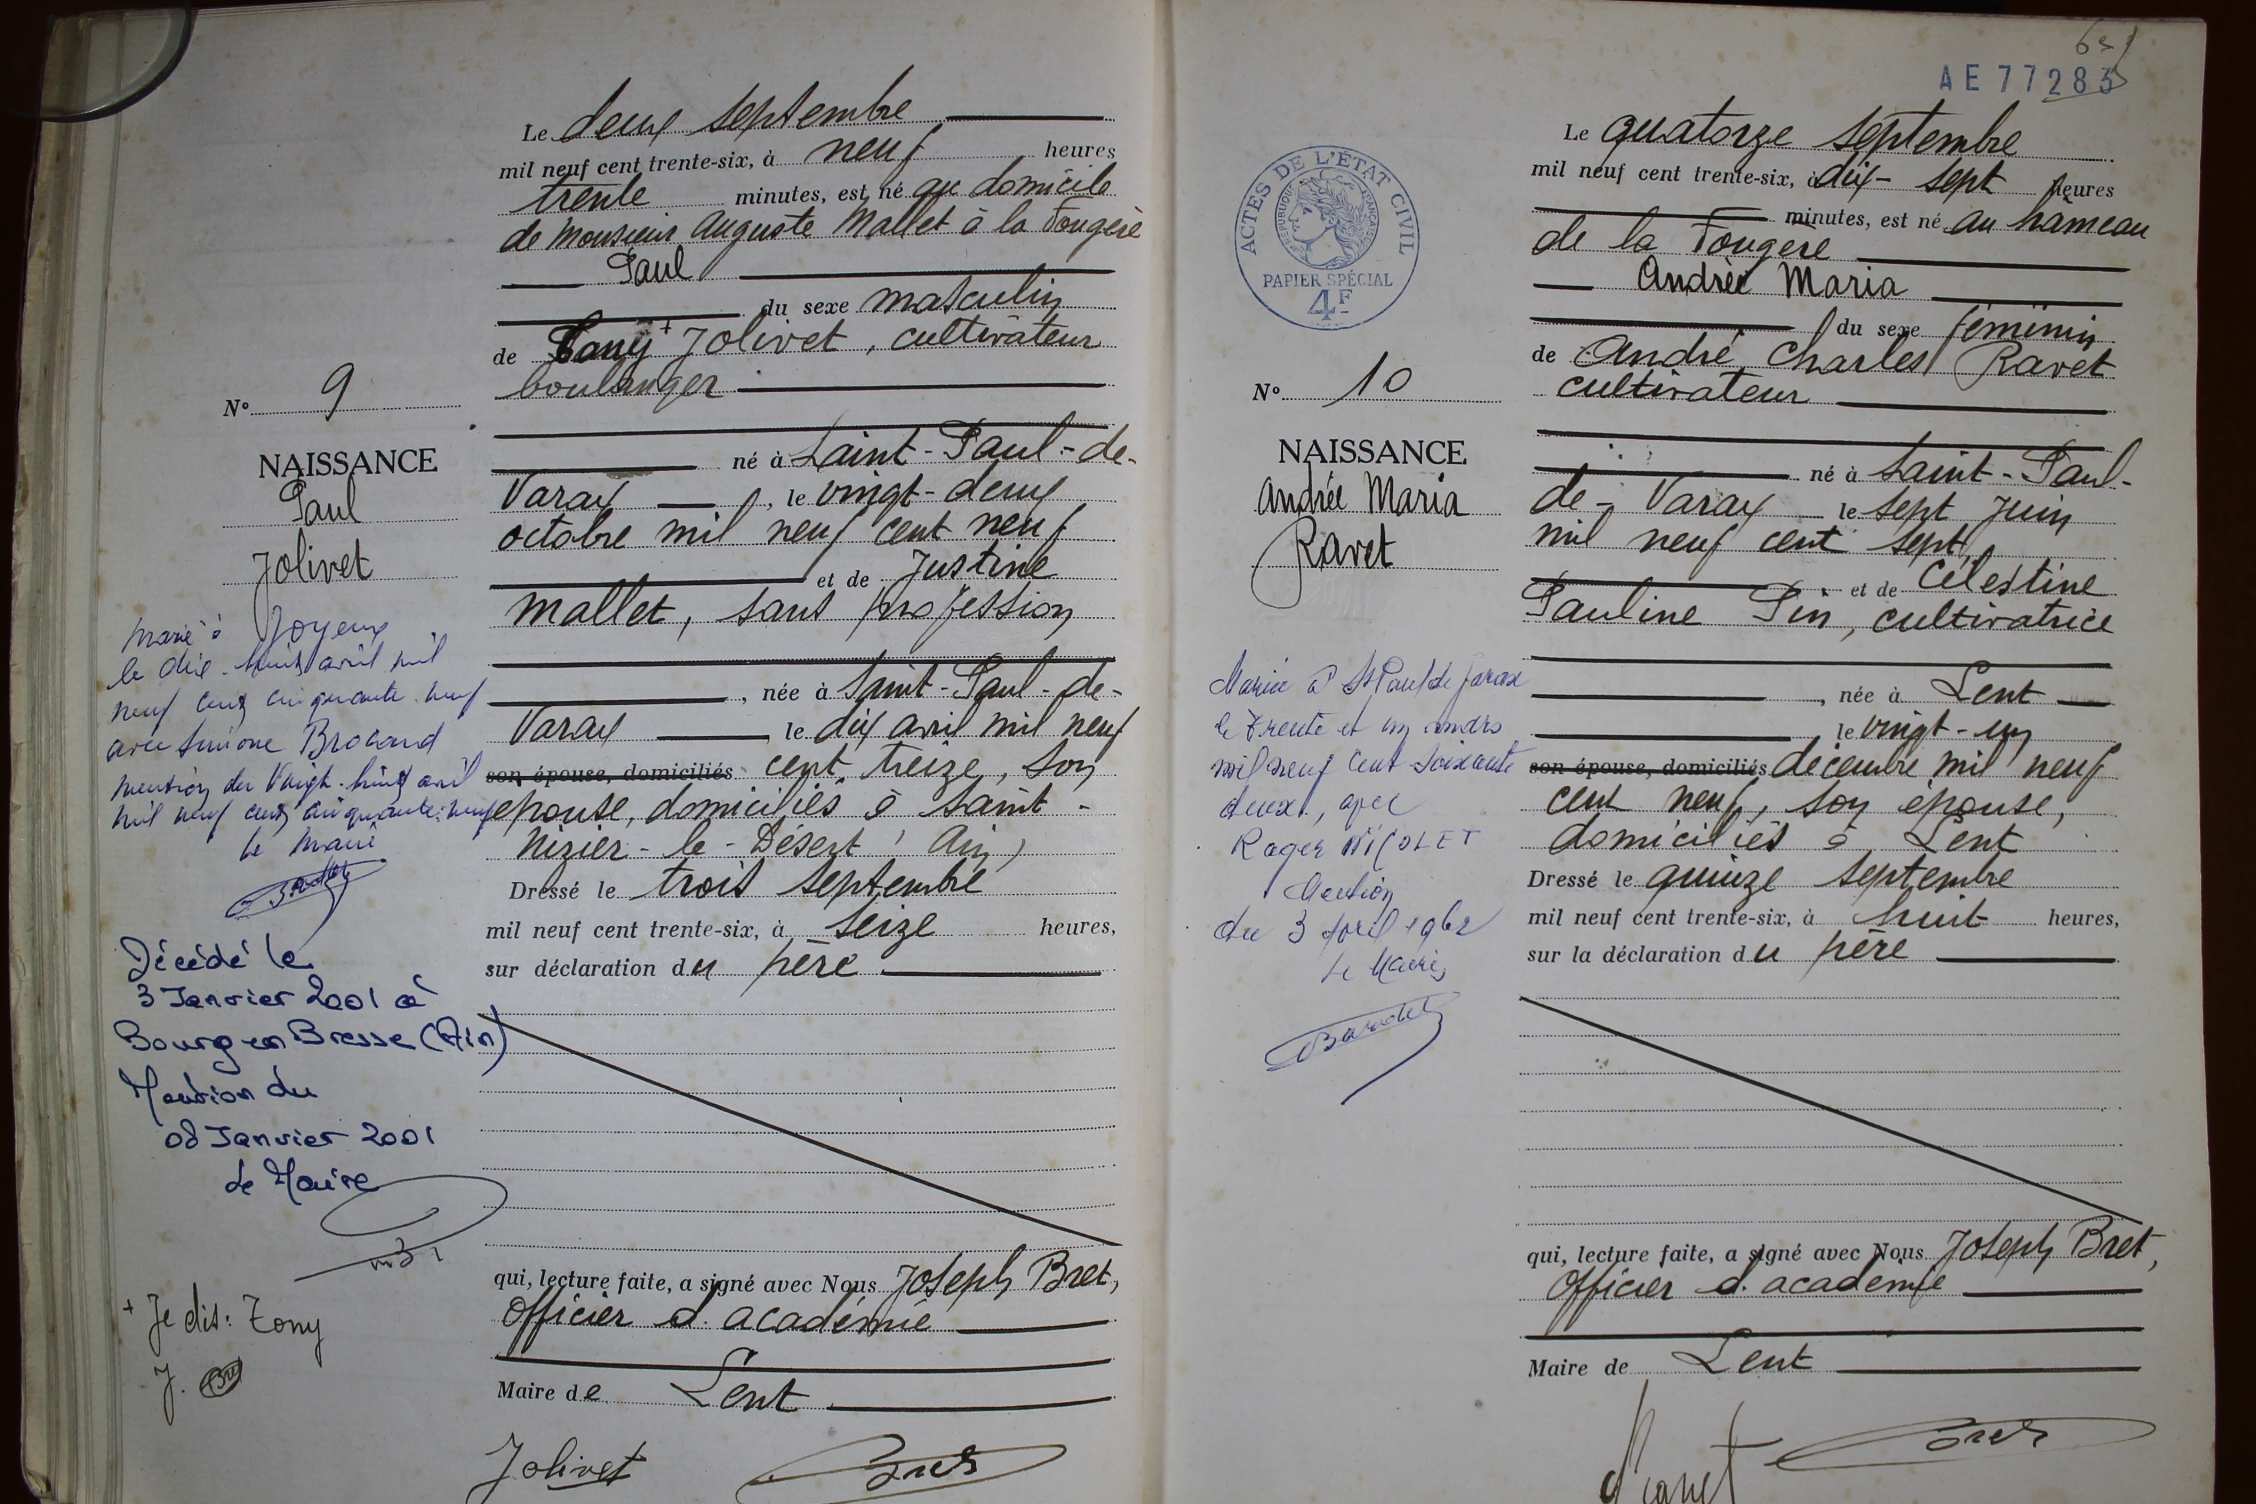 Le deux septembre
mil neuf cent trente-six, à neuf heures
trente minutes, est né au domicile
de Monsieur Auguste Mallet à la Fougère
Paul
du sexe masculin
de Tony + Jolivet, cultivateur
boulanger
né à Saint-Paul-de-
Varax, le vingt-deux
octobre mil neuf cent neuf
et de Justine
Mallet, sans profession
, née à Saint-Paul-de-
Varax le dix avril mil neuf
son épouse, domiciliés cent treize, son
épouse, domiciliés à Saint-
Nizier-le-Désert (Ain)
Dressé le trois septembre
mil neuf cent trente-six, à seize heures,
sur déclaration du père
qui, lecture faite, a signé avec Nous Joseph Bret,
officier d'académie
Maire de Lent
Jolivet Bret
N° 9
NAISSANCE
Paul
Jolivet
Marié à Joyeux
le dix-huit avril mil
neuf cent cinquante-neuf
avec Simone Brocard
mention du Vingt-huit avril
mil neuf cent cinquante-neuf
le Maire
Décédé le
3 Janvier 2001 à
Bourg en Bresse (Ain)
Mention du
08 Janvier 2001
Le Maire
+ Je dis: Tony
J. Bret
AE 77283
ACTES DE L'ÉTAT CIVIL
RÉPUBLIQUE FRANÇAISE
PAPIER SPÉCIAL
4F
N° 10
NAISSANCE
Andrée Maria
Ravet
Mariée à St Paul de Varax
le trente et un mars
mil neuf cent soixante
deux, avec
Roger NICOLET
Mention
du 3 Avril 1962
Le Maire,
Le quatorze septembre
mil neuf cent trente-six, à dix-sept heures
minutes, est né au hameau
de la Fougère
Andrée Maria
du sexe féminin
de André Charles Ravet
cultivateur
né à Saint-Paul-
de-Varax le sept juin
mil neuf cent sept,
et de Célestine
Pauline Pin, cultivatrice
, née à Lent
le vingt-un
son épouse, domiciliés décembre mil neuf
cent neuf, son épouse,
domiciliés à Lent
Dressé le quinze septembre
mil neuf cent trente-six, à huit heures,
sur la déclaration du père
qui, lecture faite, a signé avec Nous Joseph Bret,
officier d'académie
Maire de Lent
Ravet Bret